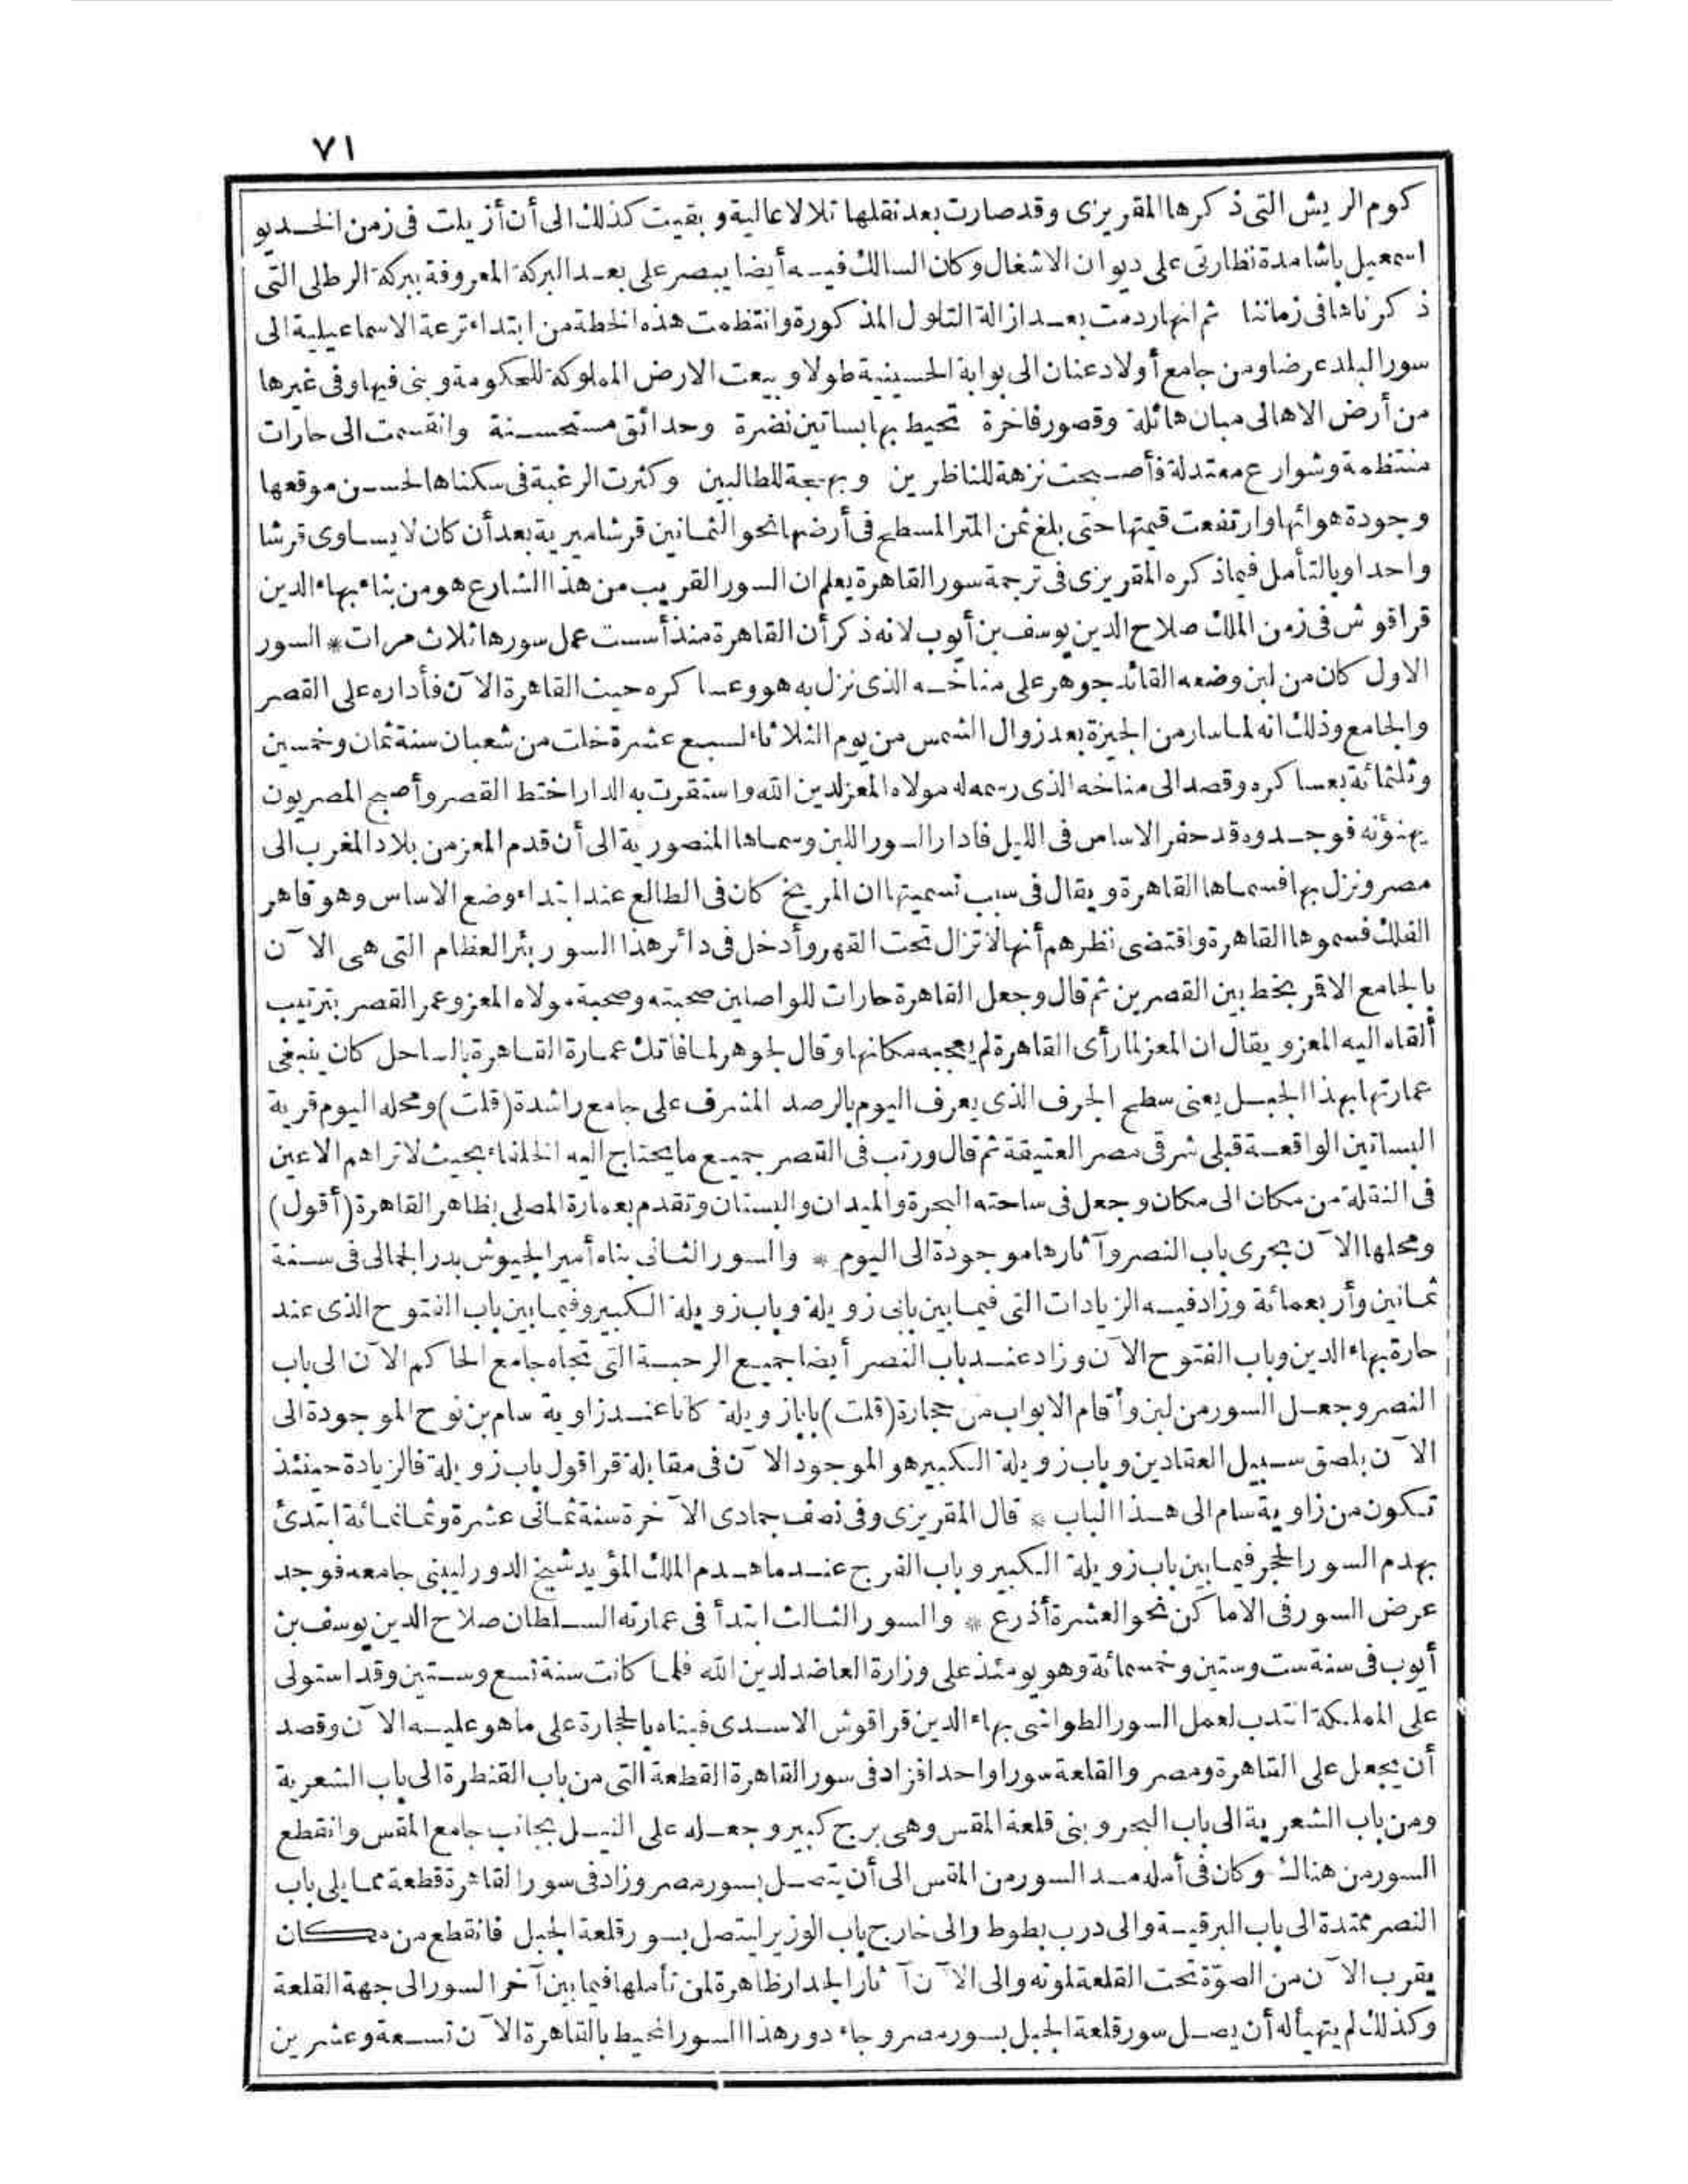 ٧١
كوم الريش التى ذكرها المقريزى وقد صارت بعد نقلها تلالا عالية وبقيت كذلك الى أن أزيلت فى زمن الخديو
اسمعيل باشا مدة نظارتى على ديوان الاشغال وكان السالك فيه أيضا يبصر على بعد البركة المعروفة ببركة الرطلى التى
ذكرناها فى زماننا ثم انها ردمت بعد ازالة التلول المذكورة وانتظمت هذه الخطة من ابتداء ترعة الاسماعيلية الى
سور البلد عرضا ومن جامع أولاد عنان الى بوابة الحسينية طولا وبيعت الارض المملوكة للحكومة وبنى فيها وفى غيرها
من أرض الاهالى مبان هائلة وقصور فاخرة تحيط بها بساتين نضرة وحدائق مستحسنة وانقسمت الى حارات
منتظمة وشوارع معتدلة فأصبحت نزهة للناظرين وبهجة للطالبين وكثرت الرغبة فى سكناها لحسن موقعها
وجودة هوائها وارتفعت قيمتها حتى بلغ ثمن المتر المسطح فى أرضها نحو الثمانين قرشا ميرية بعد أن كان لا يساوى قرشا
واحدا وبالتأمل فيما ذكره المقريزى فى ترجمة سور القاهرة يعلم ان السور القريب من هذا الشارع هو من بناء بهاء الدين
قراقوش فى زمن الملك صلاح الدين يوسف بن أيوب لانه ذكر أن القاهرة منذ أسست عمل سورها ثلاث مرات * السور
الاول كان من لبن وضعه القائد جوهر على مناخه الذى نزل به هو وعساكره حيث القاهرة الآن فأداره على القصر
والجامع وذلك انه لما سار من الجيزة بعد زوال الشمس من يوم الثلاثاء لسبع عشرة خلت من شعبان سنة ثمان وخمسين
وثلثمائة بعساكره وقصد الى مناخه الذى رسمه له مولاه المعز لدين الله واستقرت به الدار اختط القصر وأصبح المصريون
يهنؤنه فوجدوه قد حفر الاساس فى الليل فادار السور اللبن وسماها المنصورية الى أن قدم المعز من بلاد المغرب الى
مصر ونزل بها فسماها القاهرة ويقال فى سبب تسميتها ان المريخ كان فى الطالع عند ابتداء وضع الاساس وهو قاهر
الفلك فسموها القاهرة واقتضى نظرهم أنها لا تزال تحت القهر وأدخل فى دائر هذا السور بئر العظام التى هى الآن
بالجامع الاقمر بخط بين القصرين ثم قال وجعل القاهرة حارات للواصلين صحبته وصحبة مولاه المعز وعمر القصر بترتيب
ألقاه اليه المعز ويقال ان المعز لما رأى القاهرة لم يعجبه مكانها وقال لجوهر لما فاتك عمارة القاهرة بالساحل كان ينبغى
عمارتها بهذا الجبل يعنى سطح الجرف الذى يعرف اليوم بالرصد المشرف على جامع راشدة (قلت) ومحله اليوم قرية
البساتين الواقعة قبلى شرقى مصر العتيقة ثم قال ورتب فى القصر جميع ما يحتاج اليه الخلفاء بحيث لا تراهم الاعين
فى النقلة من مكان الى مكان وجعل فى ساحته البحرة والميدان والبستان وتقدم بعمارة المصلى بظاهر القاهرة (أقول)
ومحلها الآن بحرى باب النصر وآثارها موجودة الى اليوم * والسور الثانى بناه أمير الجيوش بدر الجمالى فى سنة
ثمانين وأربعمائة وزاد فيه الزيادات التى فيما بين بابى زويلة وباب زويلة الكبير وفيما بين باب الفتوح الذى عند
حارة بهاء الدين وباب الفتوح الآن وزاد عند باب النصر أيضا جميع الرحبة التى تجاه جامع الحاكم الآن الى باب
النصر وجعل السور من لبن وأقام الابواب من حجارة (قلت) بابا زويلة كانا عند زاوية سام بن نوح الموجودة الى
الآن بلصق سبيل العقادين وباب زويلة الكبير هو الموجود الآن فى مقابلة قراقول باب زويلة فالزيادة حينئذ
تكون من زاوية سام الى هذا الباب * قال المقريزى وفى نصف جمادى الآخرة سنة ثمانى عشرة وثمانمائة ابتدئ
بهدم السور الحجر فيما بين باب زويلة الكبير وباب الفرج عند ما هدم الملك المؤيد شيخ الدور ليبنى جامعه فوجد
عرض السور فى الاماكن نحو العشرة أذرع * والسور الثالث ابتدأ فى عمارته السلطان صلاح الدين يوسف بن
أيوب فى سنة ست وستين وخمسمائة وهو يومئذ على وزارة العاضد لدين الله فلما كانت سنة تسع وستين وقد استولى
على المملكة انتدب لعمل السور الطواشى بهاء الدين قراقوش الاسدى فبناه بالحجارة على ما هو عليه الآن وقصد
أن يجعل على القاهرة ومصر والقلعة سورا واحدا فزاد فى سور القاهرة القطعة التى من باب القنطرة الى باب الشعرية
ومن باب الشعرية الى باب البحر وبنى قلعة المقس وهى برج كبير وجعله على النيل بجانب جامع المقس وانقطع
السور من هناك وكان فى أمله مد السور من المقس الى أن يتصل بسور مصر وزاد فى سور القاهرة قطعة مما يلى باب
النصر ممتدة الى باب البرقية والى درب بطوط والى خارج باب الوزير ليتصل بسور قلعة الجبل فانقطع من مكان
يقرب الآن من الصوّة تحت القلعة لموته والى الآن آثار الجدار ظاهرة لمن تأملها فيما بين آخر السور الى جهة القلعة
وكذلك لم يتهيأ له أن يصل سور قلعة الجبل بسور مصر وجاء دور هذا السور المحيط بالقاهرة الآن تسعة وعشرين